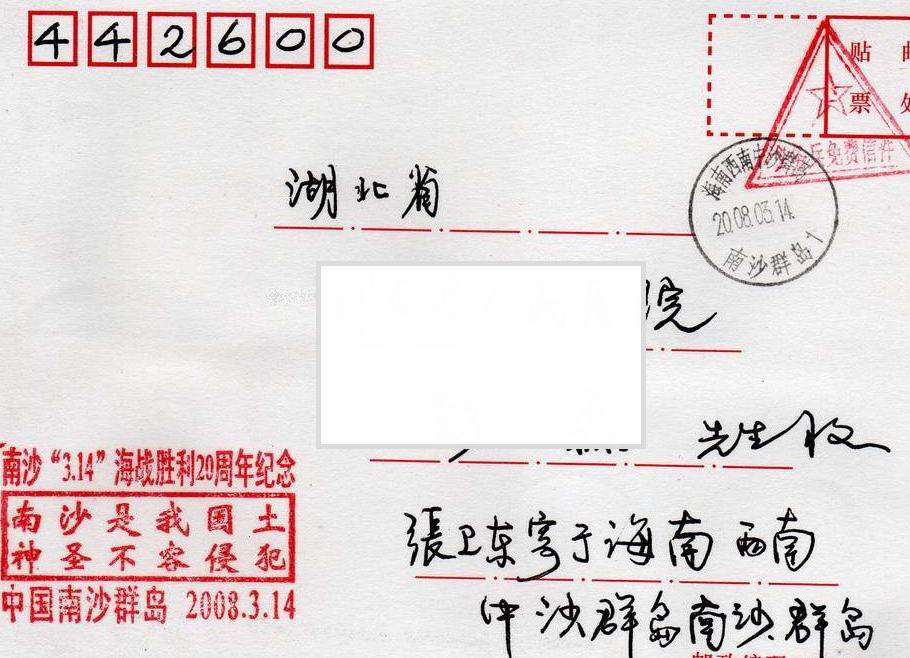 442600
贴
票
义务兵免费信件
海南西南中沙群岛
2008.03.14.
南沙群岛1
湖北省
院
先生收
南沙“3.14”海战胜利20周年纪念
南沙是我国土
神圣不容侵犯
中国南沙群岛 2008.3.14
張卫东寄于海南西南
中沙群岛南沙群岛